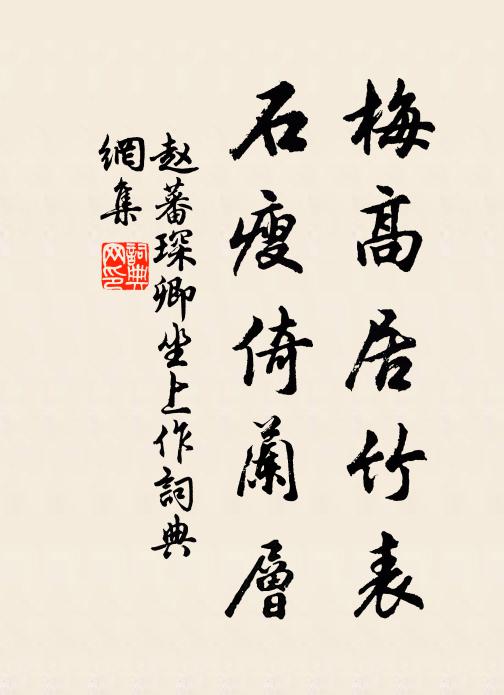 梅高居竹表
石瘦倚蘭層
赵蕃琛卿坐上作詞典
網集
詞典
网印